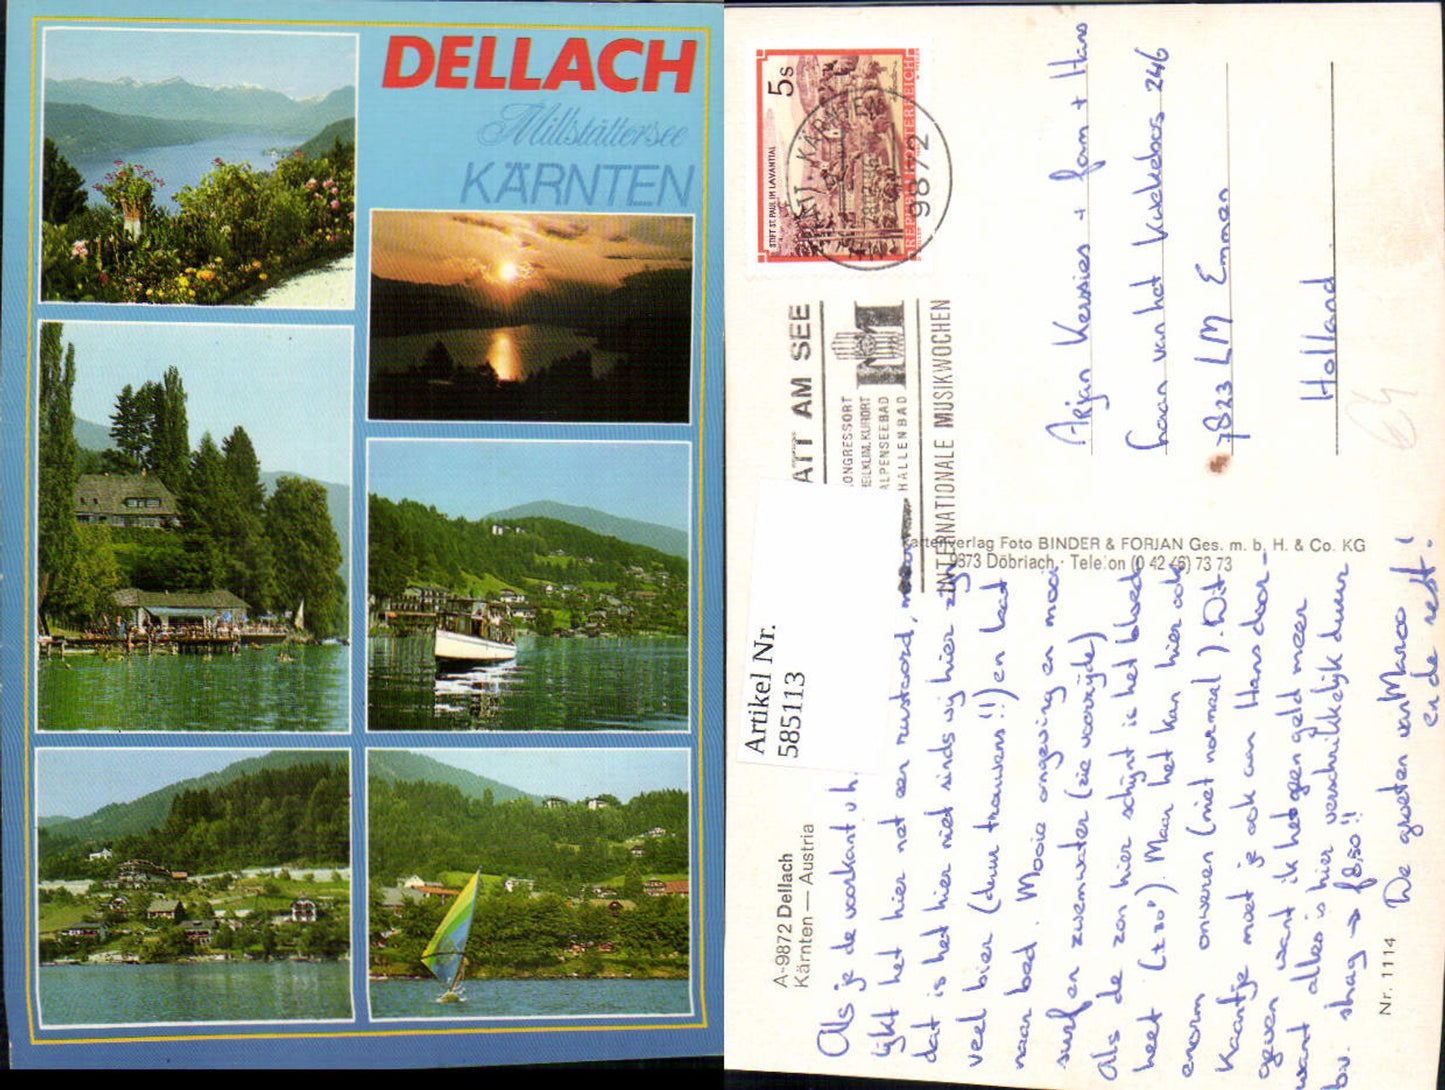 DELLACH
Millstättersee
KÄRNTEN
5s
STIFT ST. PAUL IM LAVANTTAL
REPUBLIK ÖSTERREICH
KÄRNTEN
9872
ATT AM SEE
ONGRESSORT
EILKLIM. KURORT
ALPENSEEBAD
HALLENBAD
INTERNATIONALE MUSIKWOCHEN
Arjan Kersies + fam + Hans
haan van het Kukkebos 246
7823 LM Emmen
Holland
Kartenverlag Foto BINDER & FORJAN Ges. m. b. H. & Co. KG
9873 Döbriach · Telefon (0 42 46) 73 73
Artikel Nr.
585113
A-9872 Dellach
Kärnten — Austria
Nr. 1114
Als je de voorkant v.h.
lijkt het hier net een rustoord,
dat is het hier niet sinds wij hier zijn
veel bier (dunn trouwens!!) en laat
naar bed. Mooie omgeving en mooi
surf en zwemwater (zie voorzijde)
Als de zon hier schijnt is het bloed
heet (±30°). Maar het kan hier ook
enorm onweren (niet normaal). Dit
kaartje moet je ook aan Hans door-
geven want ik heb geen geld meer
want alles is hier verschrikkelijk duur
bv. shag → f8,50!!
De groeten van Marco
en de rest!